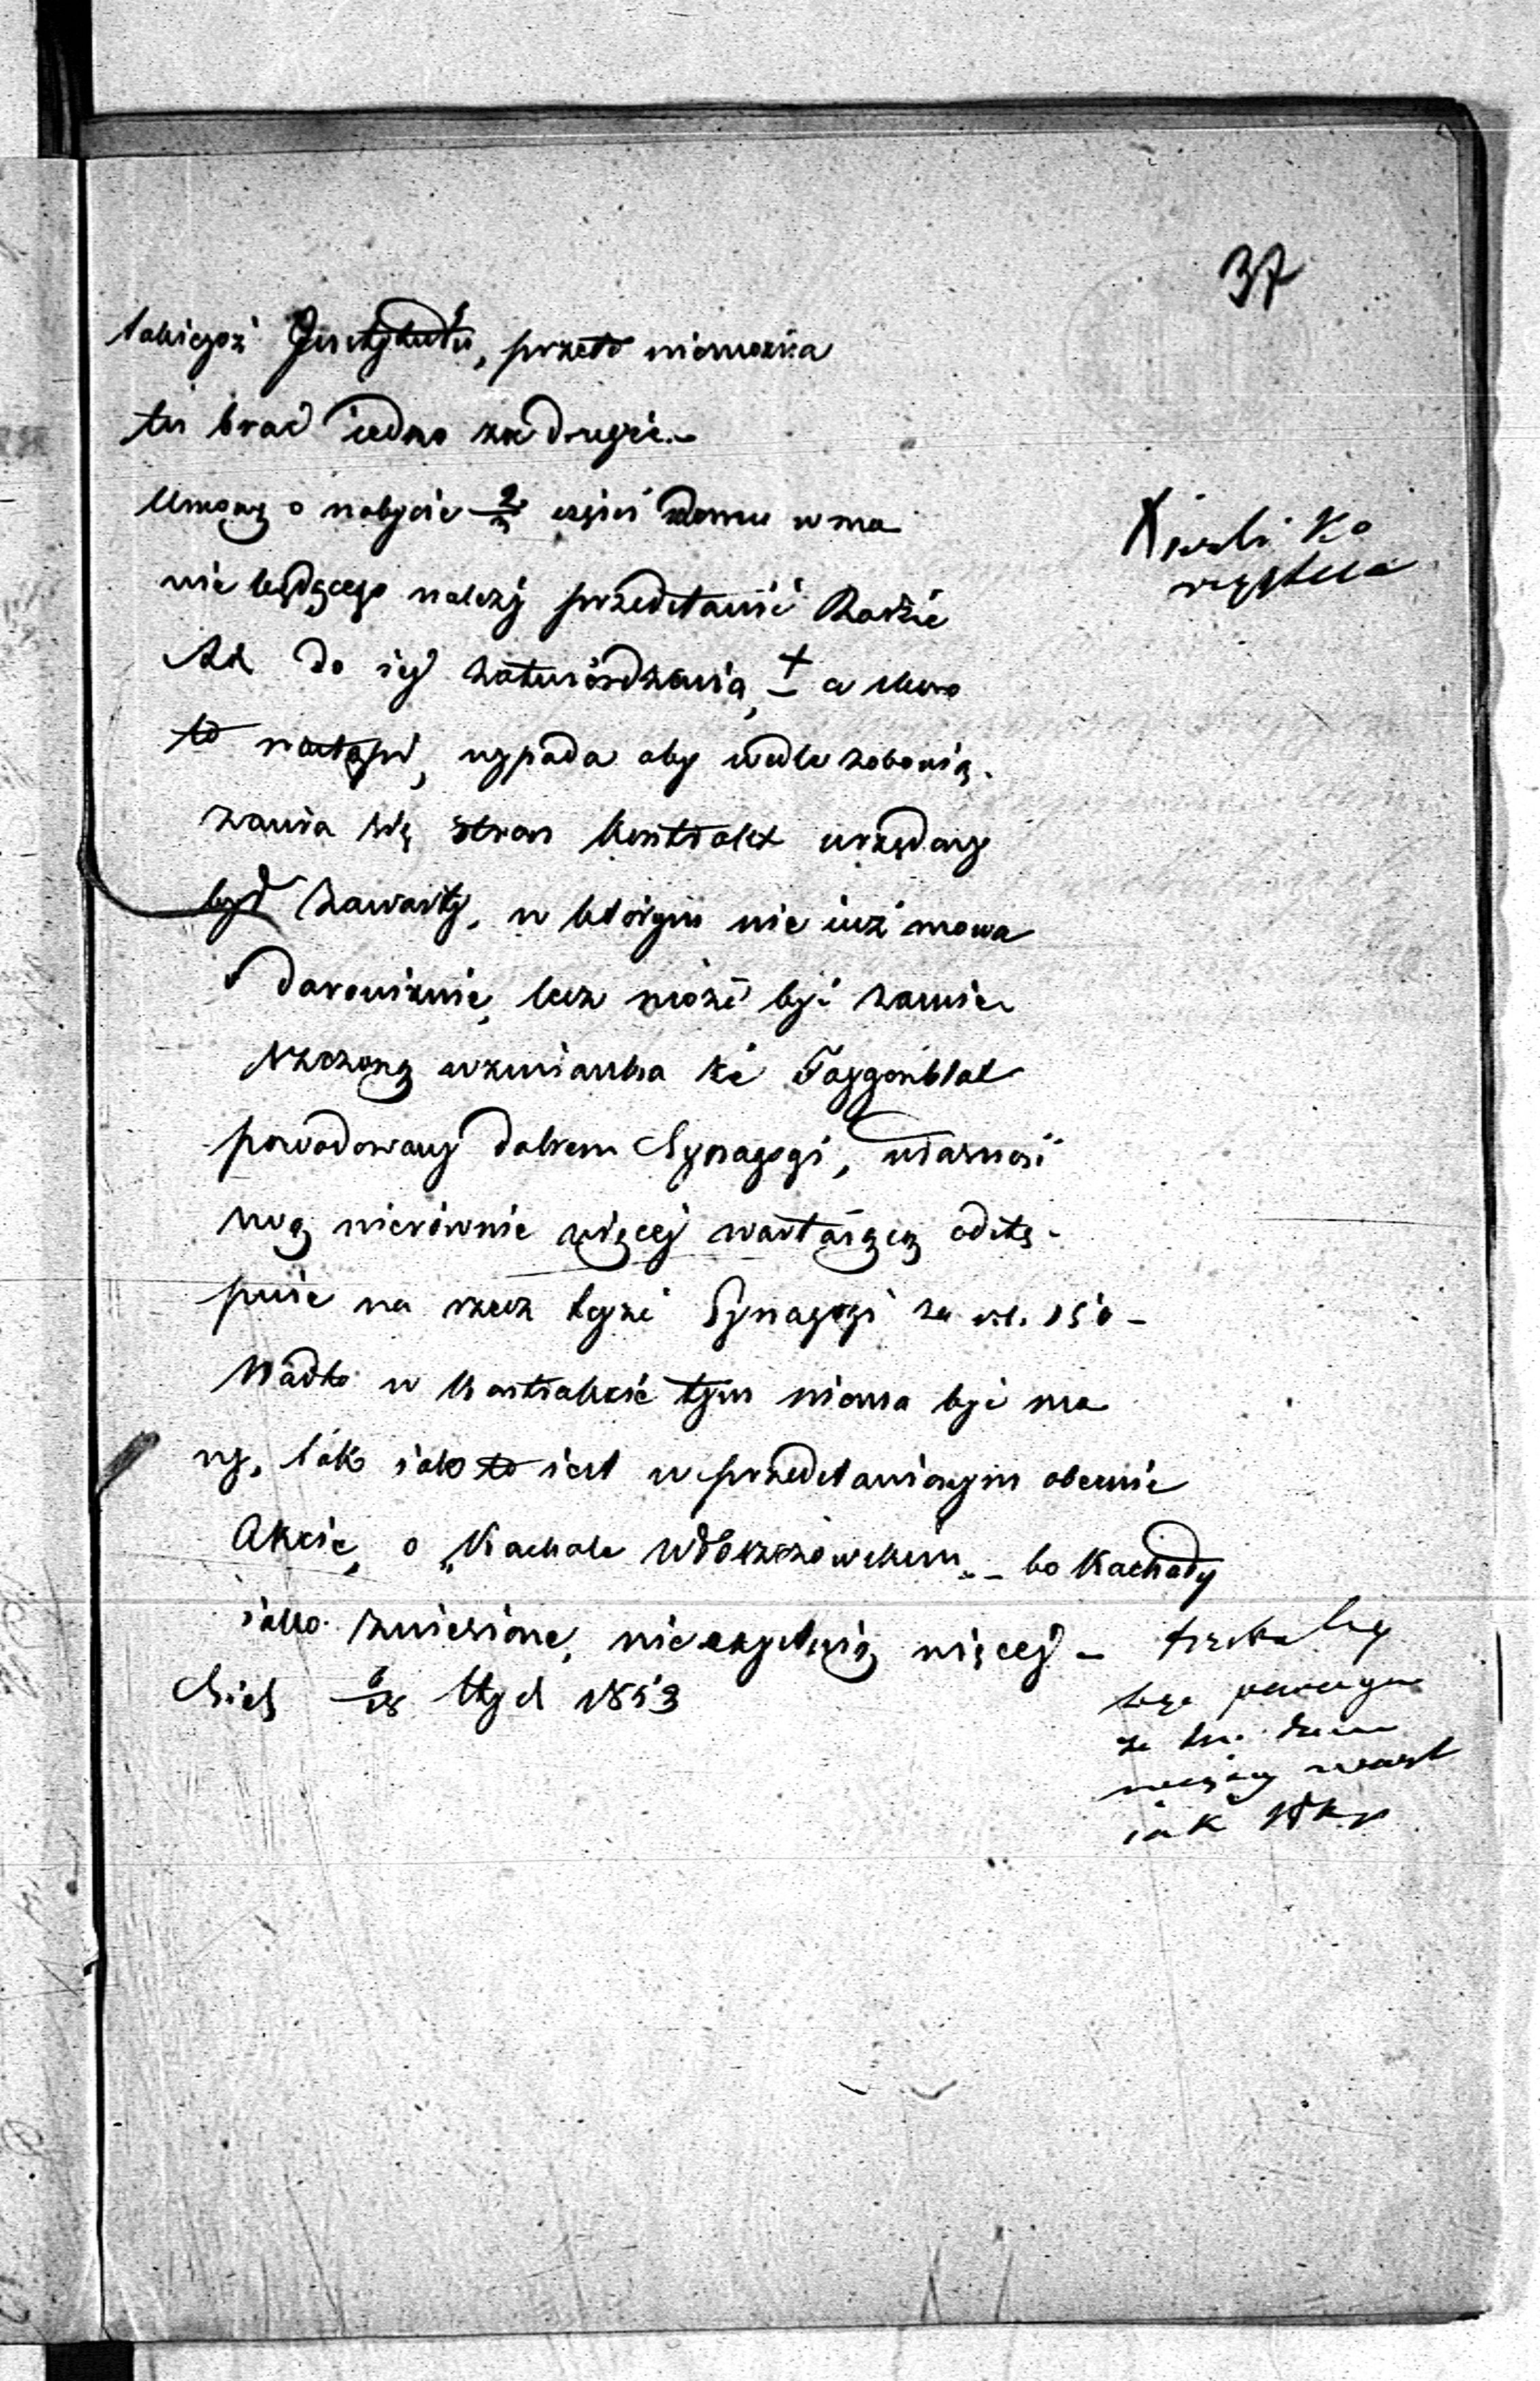 37
takiegoż Instytutu, przeto niemożna
tu brać iedno za drugie.
Umowę o nabycie 2/3 części domu w mo
wie będącego należy przedstawić Radzie
do iéj zatwierdzenia, + a skoro
to nastąpi, wypada aby wedle zobowią-
zania się stron Kontrakt urzędowy
był zawarty, w którym nie iuż mowa
o darowiznie, lecz może być zamie-
szczoną wzmianka że Faygenblat
powodowany dobrem Synagogi, własność
swą nierównie więcej wartaiącą odstę-
puie na rzecz tejże Synagogi za rsr. 150 -
Nadto w Kontrakcie tym niema być mo
wy, tak iako to iest w przedstawionym obecnie
Akcie, o „Kachale Włoszczowskim" - bo Kachały
iako zniesione, nie exystuią więcej -
6/18 Stycz 1853
Jeżeli Ko
trzeba by
tego
że
więcej wart
iak